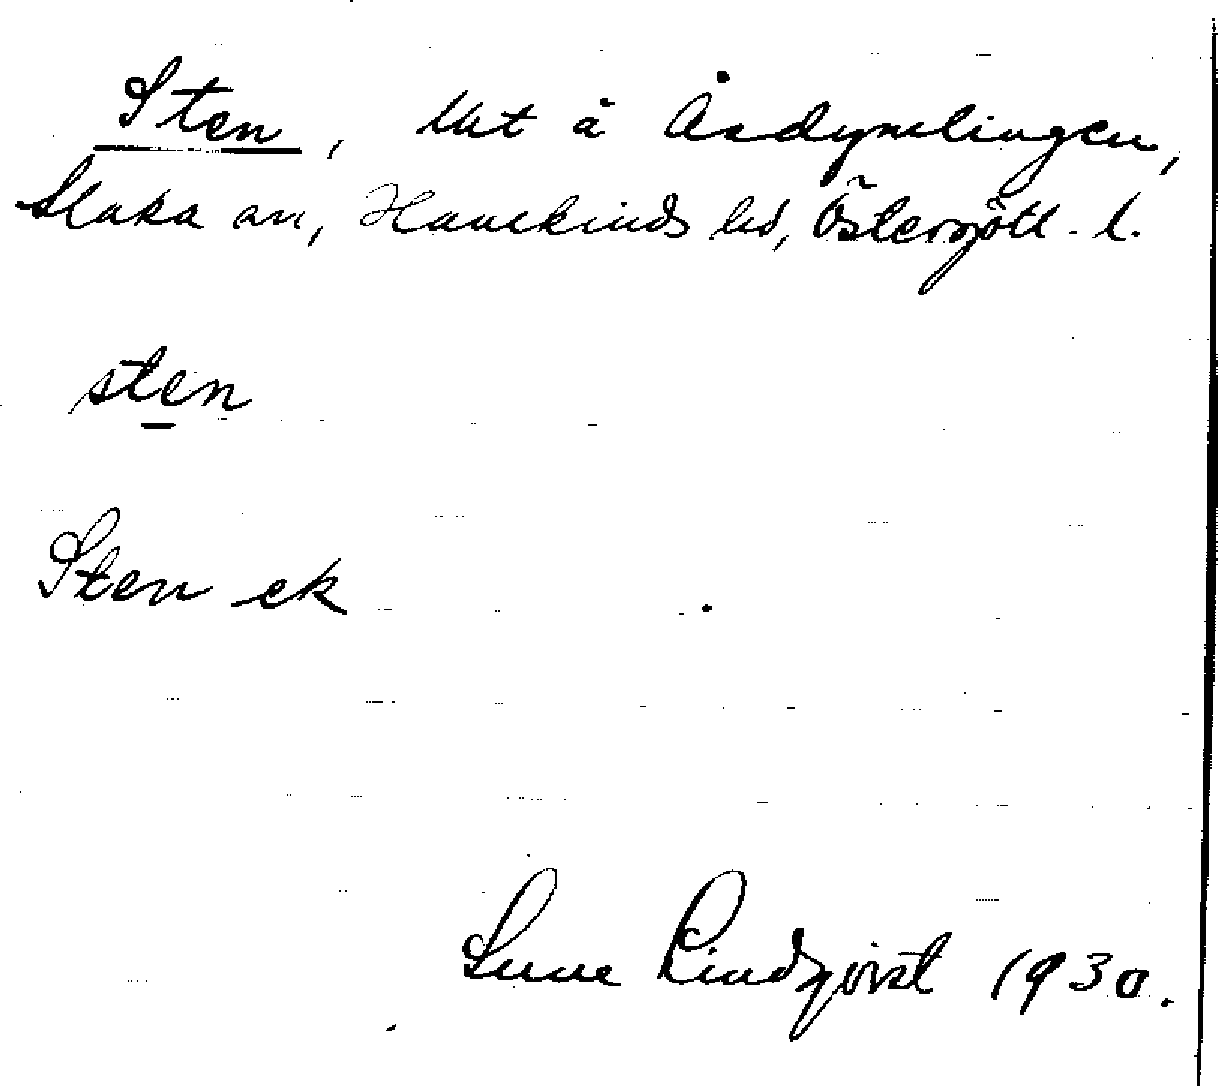 Sten, utet å Åsdymlingen,
Slaka sn, Hanekinds hd, Östergötl. l.
sten
Sten ek
Sune Lindqvist 1930.